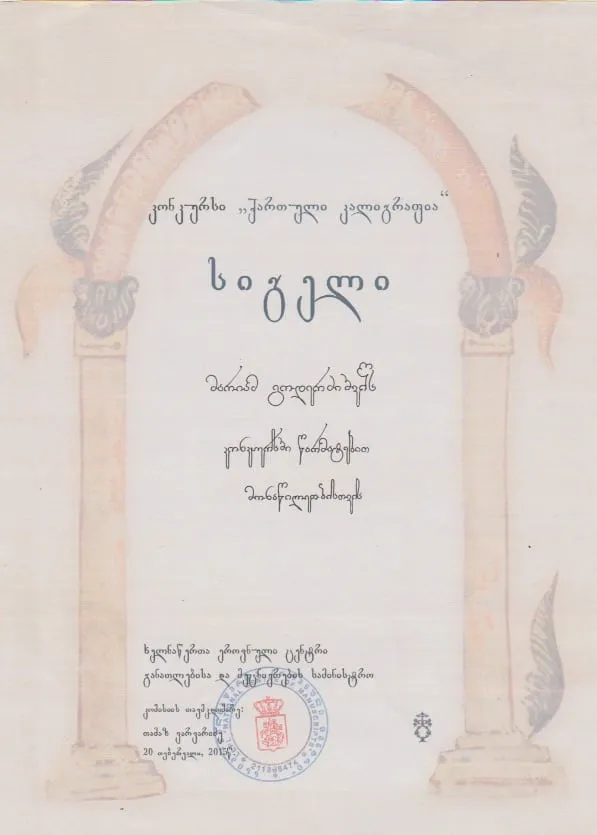 კონკურსი „ქართული კალიგრაფია“
სიგელი
მარიამ გოდერძიშვილს
კონკურსში წარმატებით
მონაწილეობისთვის
ხელნაწერთა ეროვნული ცენტრი
განათლებისა და მეცნიერების სამინისტრო
კომისიის თავმჯდომარე:
თამაზ ვარვარიძე
20 თებერვალი,
NATIONAL MANUSCRIPTS
211398474